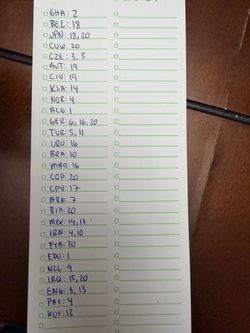 GHA: 2
BEL: 18
JPN: 18, 20
CUW: 20
CZE: 3, 5
AUT: 19
CIV: 19
KSA: 14
NOR: 4
ALG: 1
GER: 6, 16, 20
TUR: 5, 11
URU: 16
BRA: 10
MAR: 16
COD: 20
CPV: 17
ARG: 7
BIH: 20
MEX: 14, 17
IRN: 4, 10
FRA: 20
ECU: 1
NZL: 9
IRQ: 15, 20
ENG: 3, 13
PAR: 4
KOR: 12